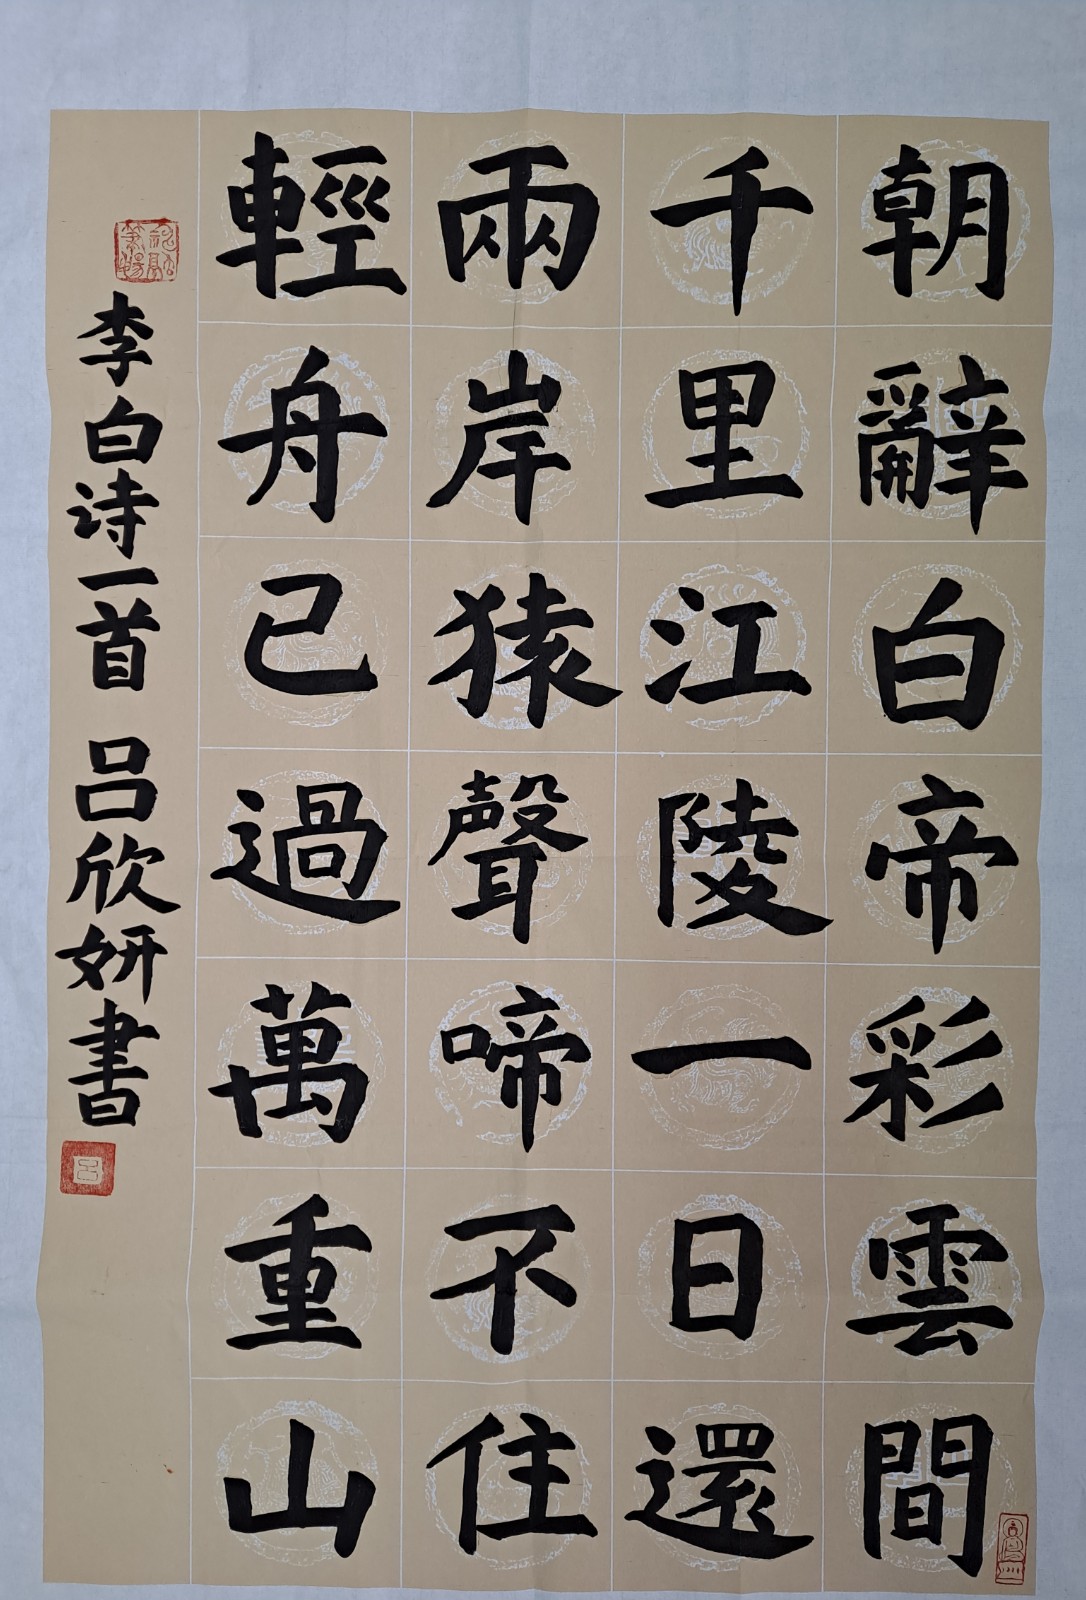 朝辭白帝彩雲間
千里江陵一日還
兩岸猿聲啼不住
輕舟已過萬重山
李白诗一首 吕欣妍書